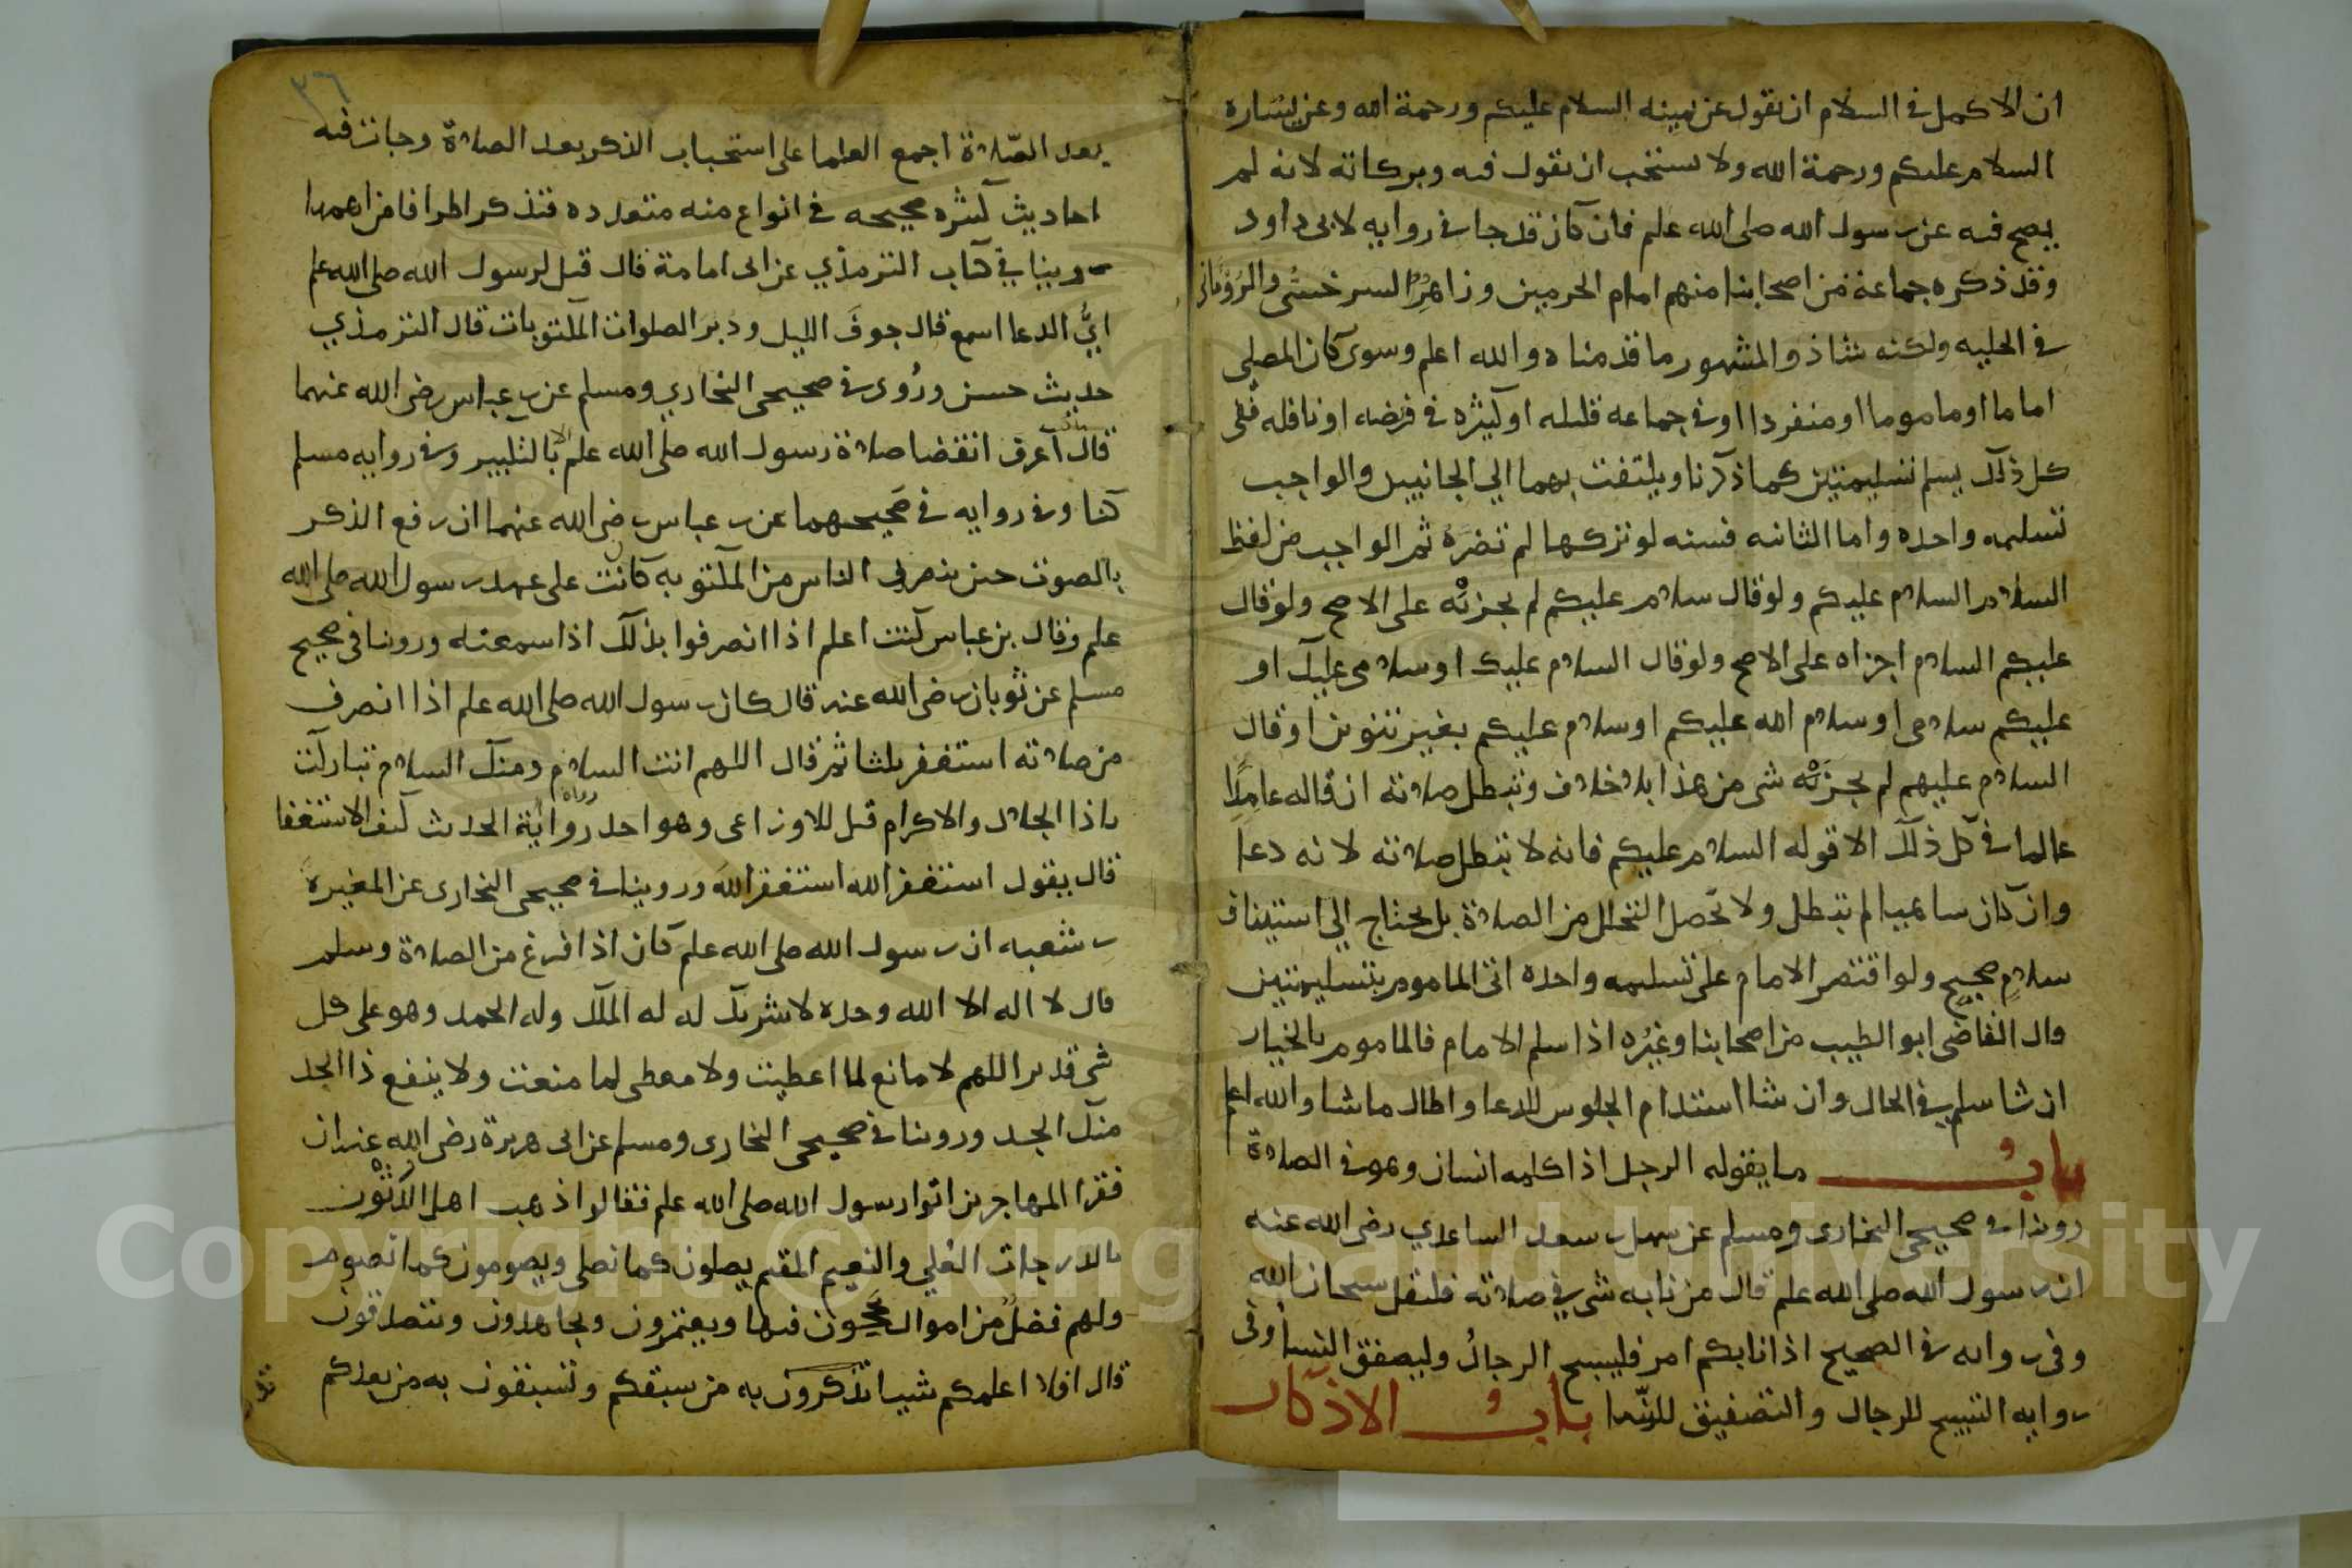 ان الاكمل في السلام ان يقول عن يمينه السلام عليكم ورحمة الله وعن يساره
السلام عليكم ورحمة الله ولا يستحب ان يقول فيه وبركاته لانه لم
يصح فيه عن رسول الله صلى الله علم فان كان قد جا في روايه لابى داود
وقد ذكره جماعة من اصحابنا منهم امام الحرمين وزاهر السرخسى والرويانى
في الحليه ولكنه شاذ والمشهور ما قدمناه والله اعلم وسوى كان المصلى
اماما او ماموما او منفردا او في جماعه قليله او كثيره في فريضه او نافله ففى
كل ذلك يسلم تسليمتين كما ذكرنا ويلتفت بهما الي الجانبين والواجب
تسليمه واحده واما الثانيه فسنه لو تركها لم تضره ثم الواجب من لفظ
السلام السلام عليكم ولو قال سلام عليكم لم يجزئه على الاصح ولو قال
عليكم السلام اجزاه على الاصح ولو قال السلام عليك او سلامى عليك او
عليكم سلامى او سلام الله عليكم او سلام عليكم بغير تنوين او قال
السلام عليهم لم يجزئه شى من هذا بلا خلاف وتبطل صلاته ان قاله عامدًا
عالما في كل ذلك الا قوله السلام عليكم فانه لا تبطل صلاته لانه دعا
وان كان ساهيا لم تبطل ولا تحصل التحلل من الصلاة بل يحتاج الي استيناف
سلامٍ صحيح ولو اقتصر الامام على تسليمه واحده اتى الماموم بتسليمتين
قال القاضى ابو الطيب من اصحابنا وغيره اذا سلم الامام فالماموم بالخيار
ان شا سلم في الحال وان شا استدام الجلوس للدعا واطال ما شا والله اعلم
باب ما يقوله الرجل اذا كلمه انسان وهو في الصلاة
روينا في صحيحى البخارى ومسلم عن سهل بن سعد الساعدي رضى الله عنه
ان رسول الله صلى الله علم قال من نابه شى في صلاته فليقل سبحان الله
وفى روايه في الصحيح اذا نابكم امر فليسبح الرجالُ وليصفق النسا وفى
روايه التسبيح للرجال والتصفيق للنسا باب الاذكار
٣٦
بعد الصّلاة اجمع العلما على استحباب الذكر بعد الصلاة وجات فيه
احاديث كثيره صحيحه في انواع منه متعدده فنذكر اطرافا من اهمها
روينا في كتاب الترمذي عن ابى امامة قال قيل لرسول الله صلى الله علم
ايُّ الدعا اسمع قال جوفَ الليل ودبر الصلوات المكتوبات قال الترمذي
حديث حسن ورُوى في صحيحى البخاري ومسلم عن بن عباس رضى الله عنهما
قال كنت اعرف انقضا صلاة رسول الله صلى الله علم بالتكبير وفى روايه مسلم
كنا وفى روايه في صحيحهما عن بن عباس رضى الله عنهما ان رفع الذكر
بالصوت حين ينصرف الناس من المكتوبه كانت على عهد رسول الله صلى الله
علم وقال بن عباس كنت اعلم اذا انصرفوا بذلك اذا سمعته وروينا في صحيح
مسلم عن ثوبان رضى الله عنه قال كان رسول الله صلى الله علم اذا انصرف
من صلاته استغفر ثلثا ثم قال اللهم انت السلام ومنك السلام تباركت
ياذا الجلال والاكرام قيل للاوزاعى وهو احد رواية الحديث كيف الاستغفا
قال يقول استغفر الله استغفر الله وروينا في صحيحى البخارى عن المغيرة
بن شعبه ان رسول الله صلى الله علم كان اذا فرغ من الصلاة وسلم
قال لا اله الا الله وحده لا شريك له له الملك وله الحمد وهو على كل
شى قدير اللهم لا مانع لما اعطيت ولا معطى لما منعت ولا ينفع ذا الجد
منك الجد وروينا في صحيحى البخارى ومسلم عن ابى هريرة رضى الله عنه ان
فقرا المهاجرين اتوا رسول الله صلى الله علم فقالوا ذهب اهل الدثور
بالدرجات العُلي والنعيم المقيم يصلون كما نصلى ويصومون كما نصوم
ولهم فضلٌ من اموال يحجون فيها ويعتمرون ويجاهدون ويتصدقون
قال افلا اعلمكم شيا تدركون به من سبقكم وتسبقون به من بعدكم
Copyright © King Saud University